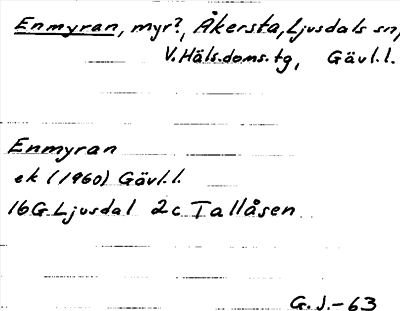 Enmyran, myr?, Åkersta, Ljusdals sn,
V. Häls.doms.tg, Gävl.l.
Enmyran
ek (1960) Gävl.l.
16G Ljusdal 2c Tallåsen
G.J.-63